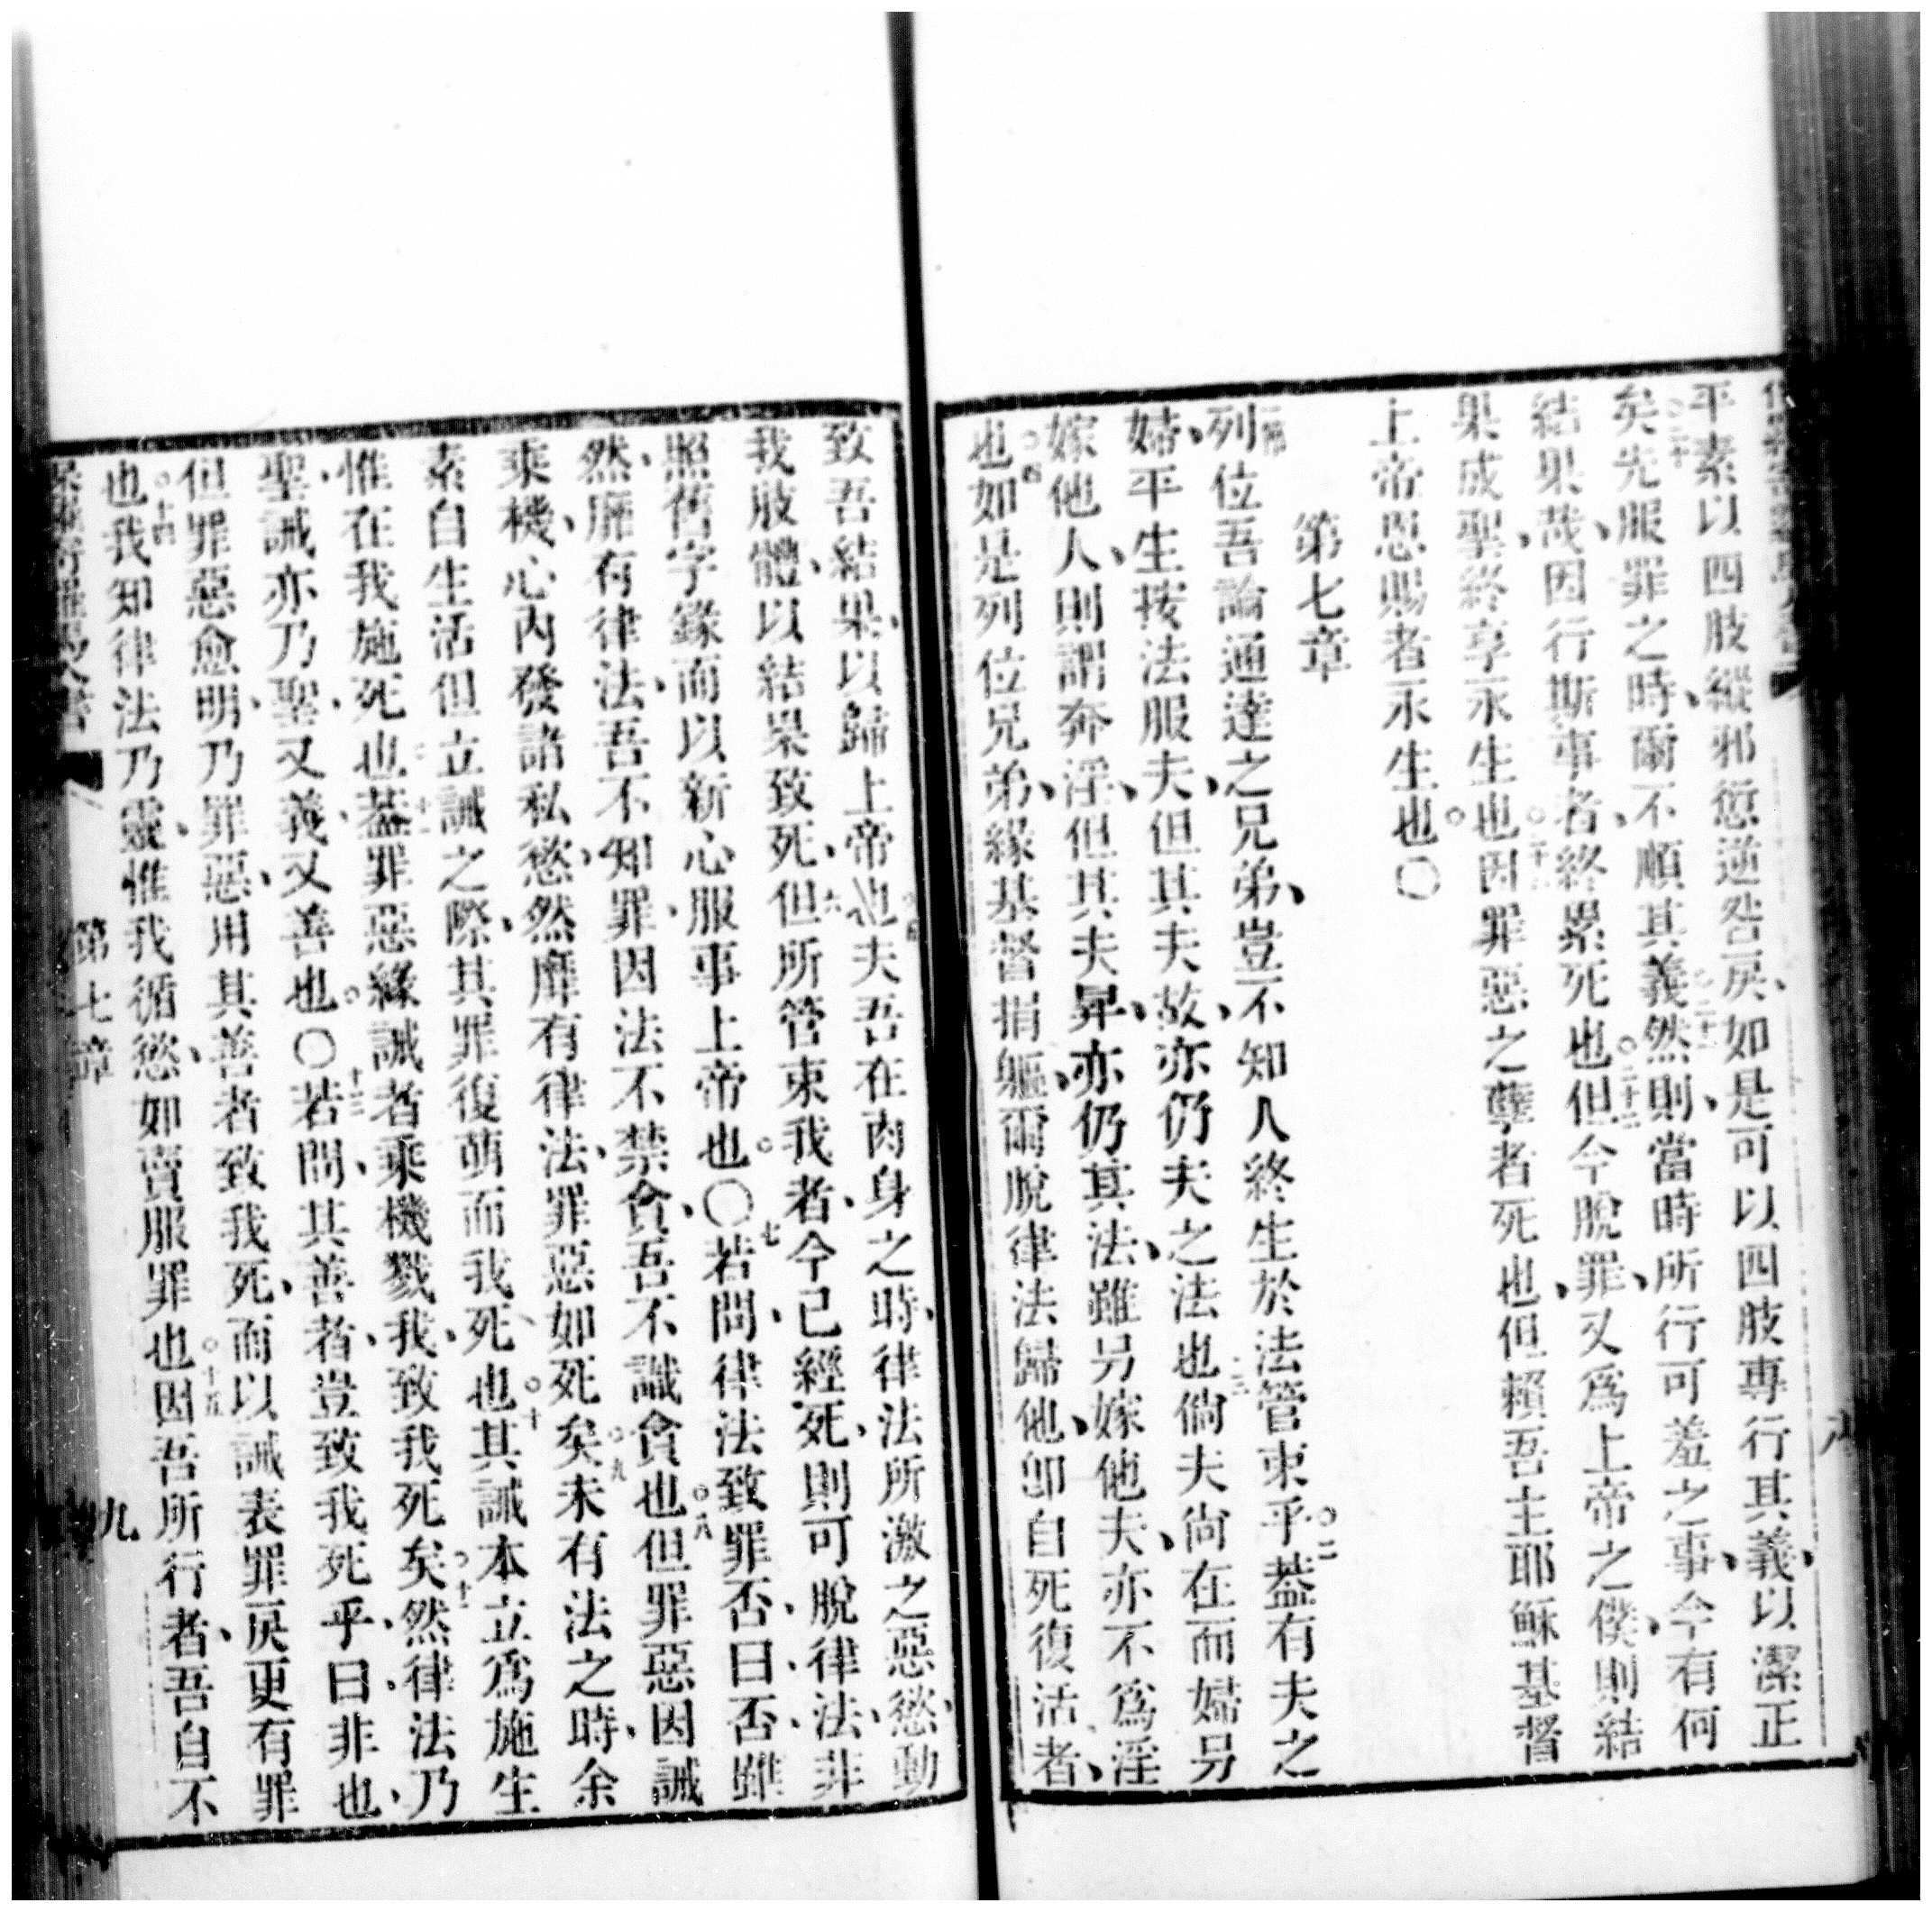 平素以四肢縱邪愆逆咎戾、如是可以四肢專行其義、以潔正
矣○二十先服罪之時、爾不順其義○二十一然則、當時所行可羞之事、今有何
結果哉、因行斯事者、終累死也○二十二但今脫罪、又爲上帝之僕、則結
果成聖、終享永生也○二十三因罪惡之孽者死也、但賴吾主耶穌基督
上帝恩賜者永生也○
第七章
列位吾論通達之兄弟、豈不知人終生於法管束乎○二葢有夫之
婦、平生按法服夫、但其夫故、亦仍夫之法也○三倘夫尚在而婦另
嫁他人、則謂奔淫、但其夫畀、亦仍其法、雖另嫁他夫、亦不爲淫
也○四如是列位兄弟、緣基督捐軀、爾脫律法歸他、卽自死復活者、
八
致吾結果、以歸上帝也○五夫吾在肉身之時、律法所激之惡慾、動
我肢體、以結果致死、○六但所管束我者、今已經死、則可脫律法、非
照舊字錄而以新心服事上帝也○○七若問、律法致罪否、曰、否、雖
然、靡有律法、吾不知罪、因法不禁貪、吾不識貪也○八但罪惡因誡
乘機、心內發諸私慾、然靡有律法、罪惡如死矣○九未有法之時、余
素自生活但立誡之際、其罪復萌而我死也○十其誡本立爲施生
惟在我施死也○十一葢罪惡緣誡者乘機戮我、致我死矣○十二然律法乃
聖、誡亦乃聖、又義、又善也○○十三若問、其善者、豈致我死乎、曰、非也、
但罪惡愈明、乃罪惡、用其善者致我死、而以誡表罪戾更有罪
也○十四我知律法乃靈、惟我循慾、如賣服罪也○十五因吾所行者、吾自不
第七章
九